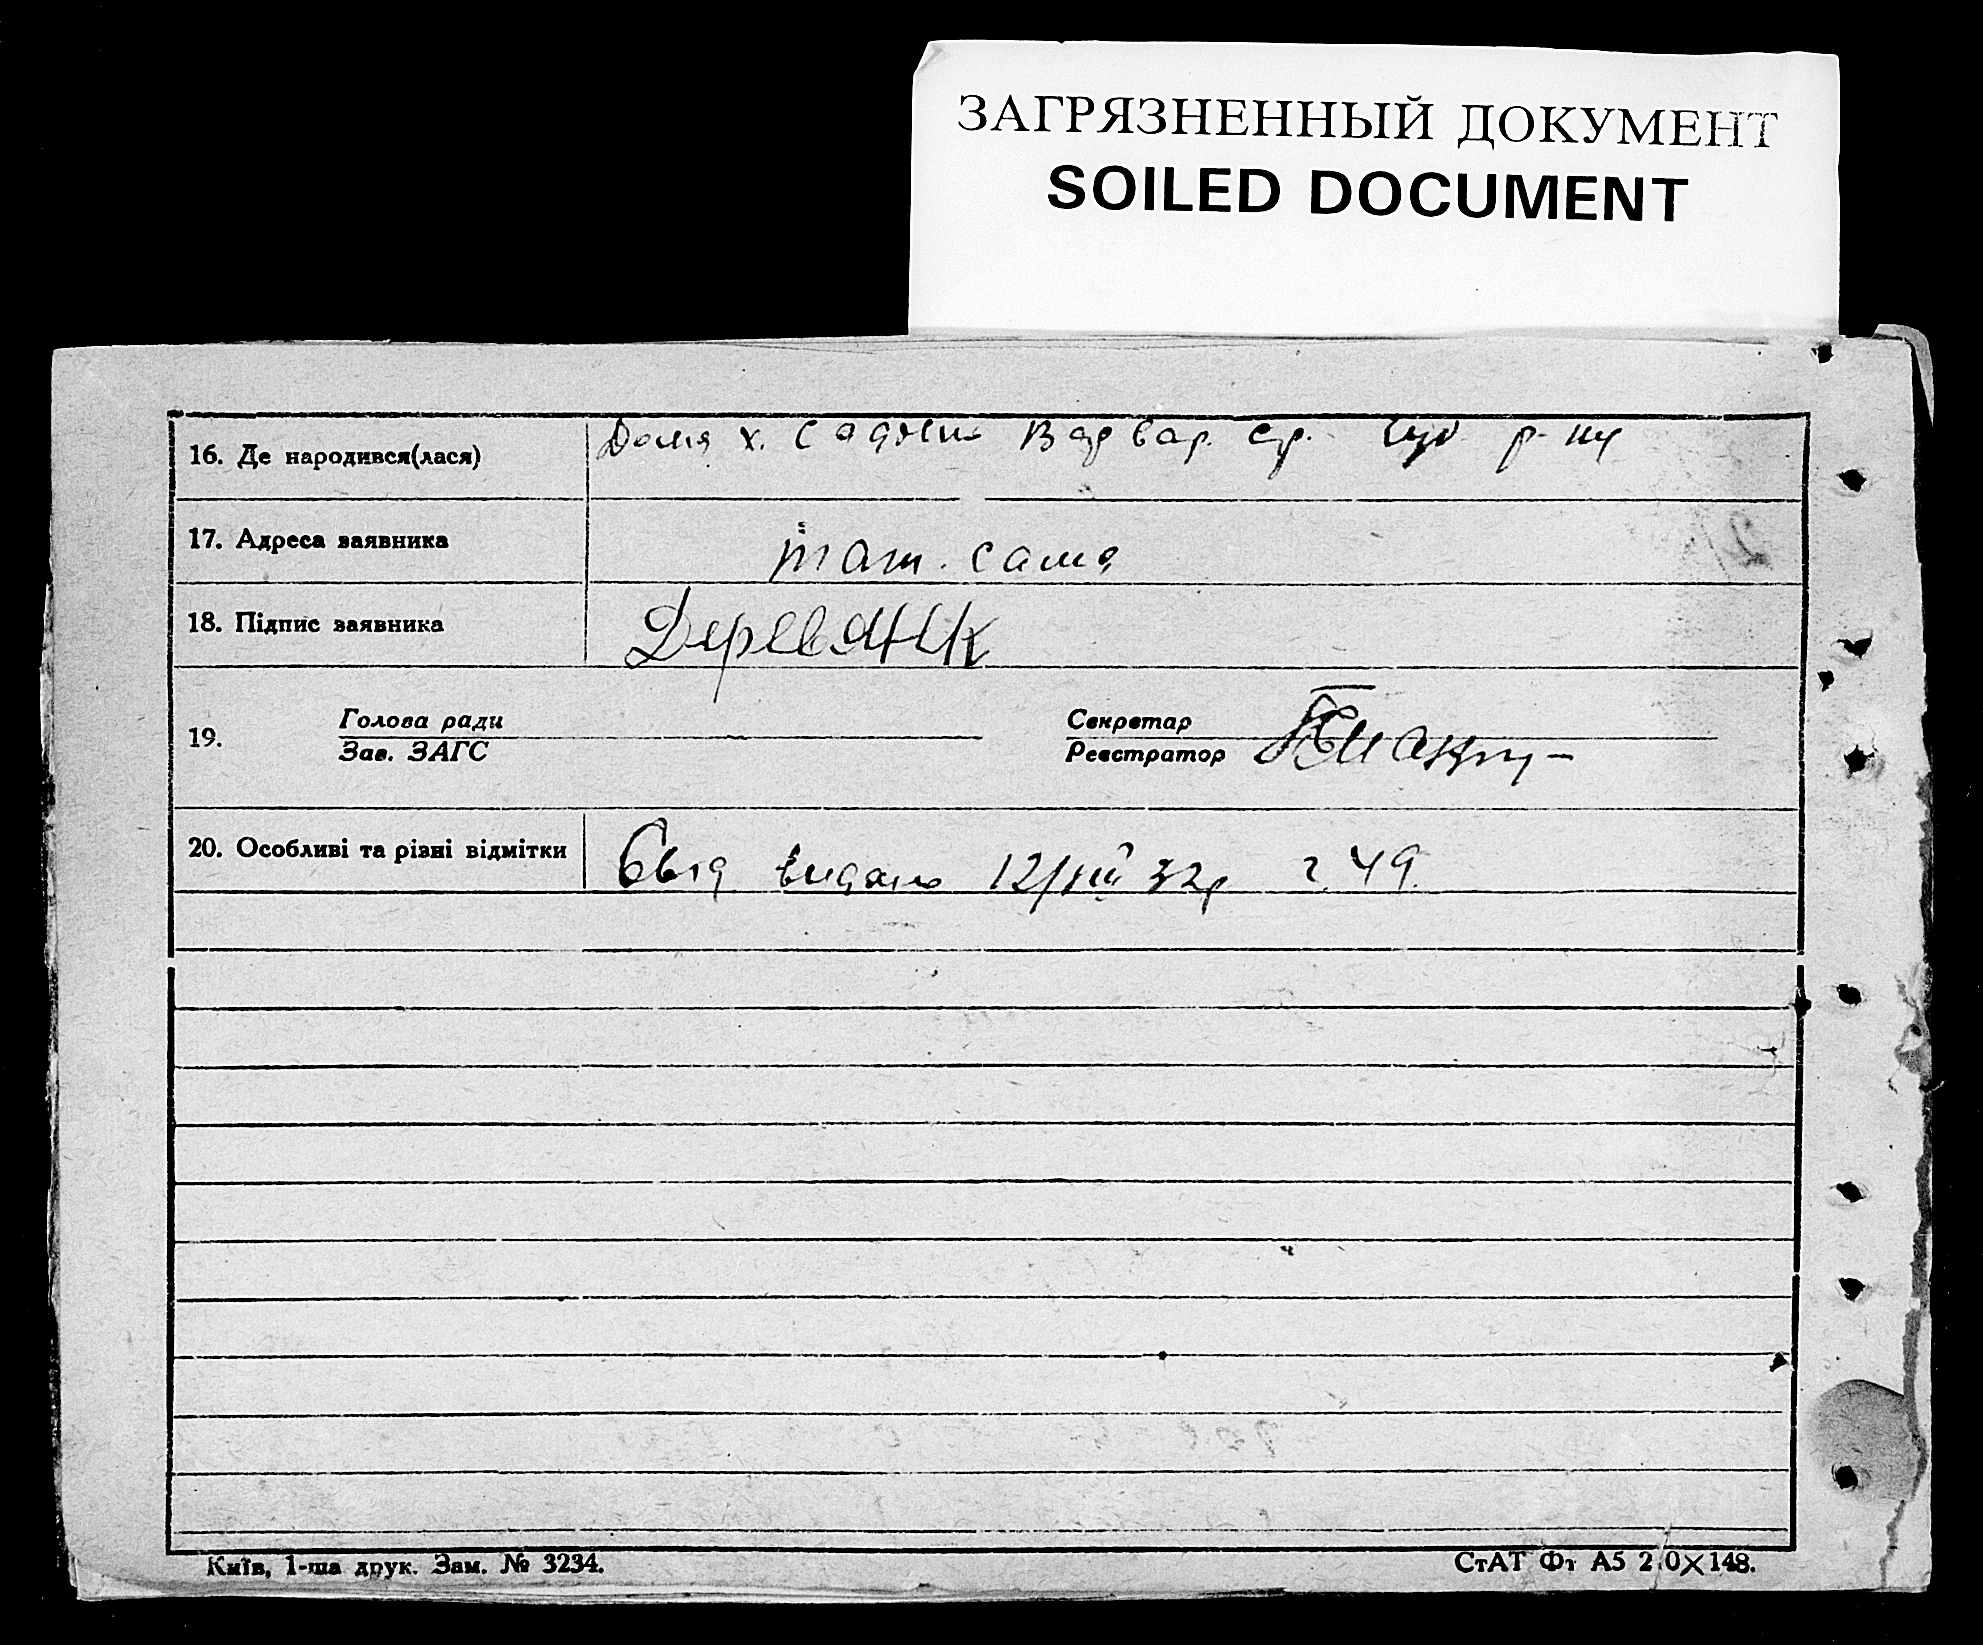 ЗАГРЯЗНЕННЫЙ ДОКУМЕНТ
SOILED DOCUMENT
16. Де народився(лася) Дома х. Варвар. с/р. р-ну
17. Адреса заявника там. сама
18. Підпис заявника Деревянк
19. Голова ради Секретар
Зав. ЗАГС Реєстратор
20. Особливі та різні відмітки видано 12/VIII 32р 49
Київ, 1-ша друк. Зам. № 3234.
СтАТ Фт А5 210×148.